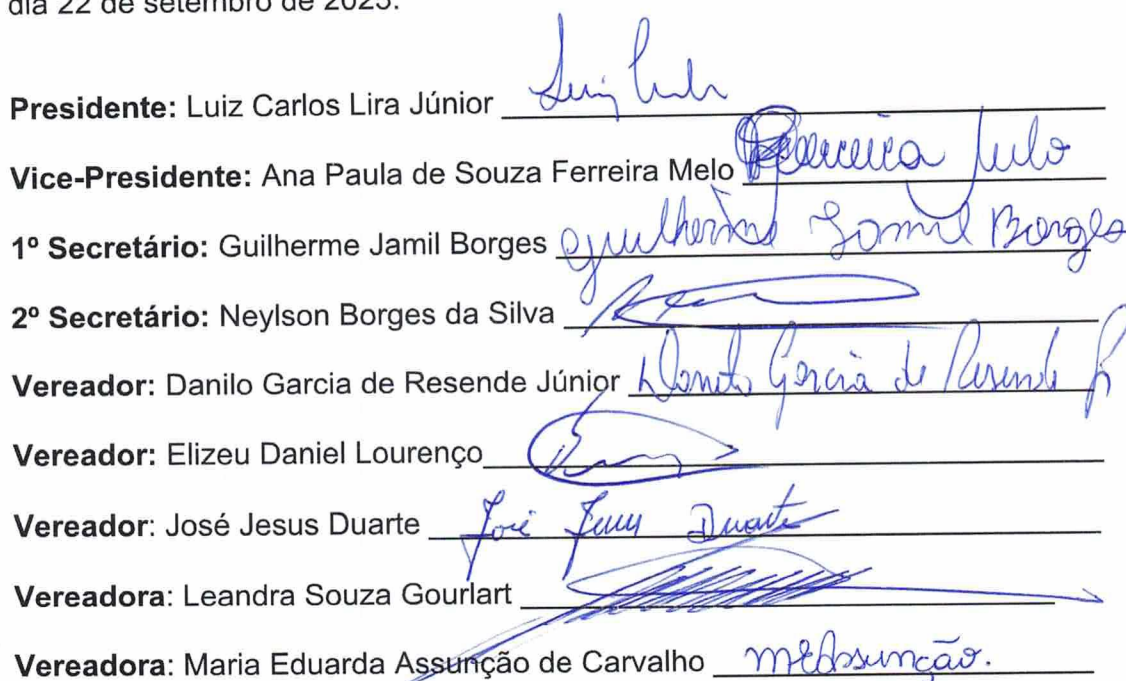 dia 22 de setembro de 2025.
Presidente: Luiz Carlos Lira Júnior
Vice-Presidente: Ana Paula de Souza Ferreira Melo
1º Secretário: Guilherme Jamil Borges Guilherme Jamil Borges
2º Secretário: Neylson Borges da Silva
Vereador: Danilo Garcia de Resende Júnior Danilo Garcia de Resende Jr
Vereador: Elizeu Daniel Lourenço
Vereador: José Jesus Duarte José Jesus Duarte
Vereadora: Leandra Souza Gourlart
Vereadora: Maria Eduarda Assunção de Carvalho MEAssunção.